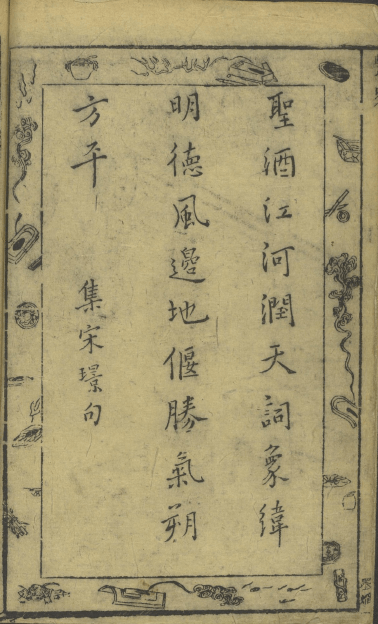 聖酒江河潤天詞象緯
明德風邊地偃勝氣朔
方平
集宋璟句